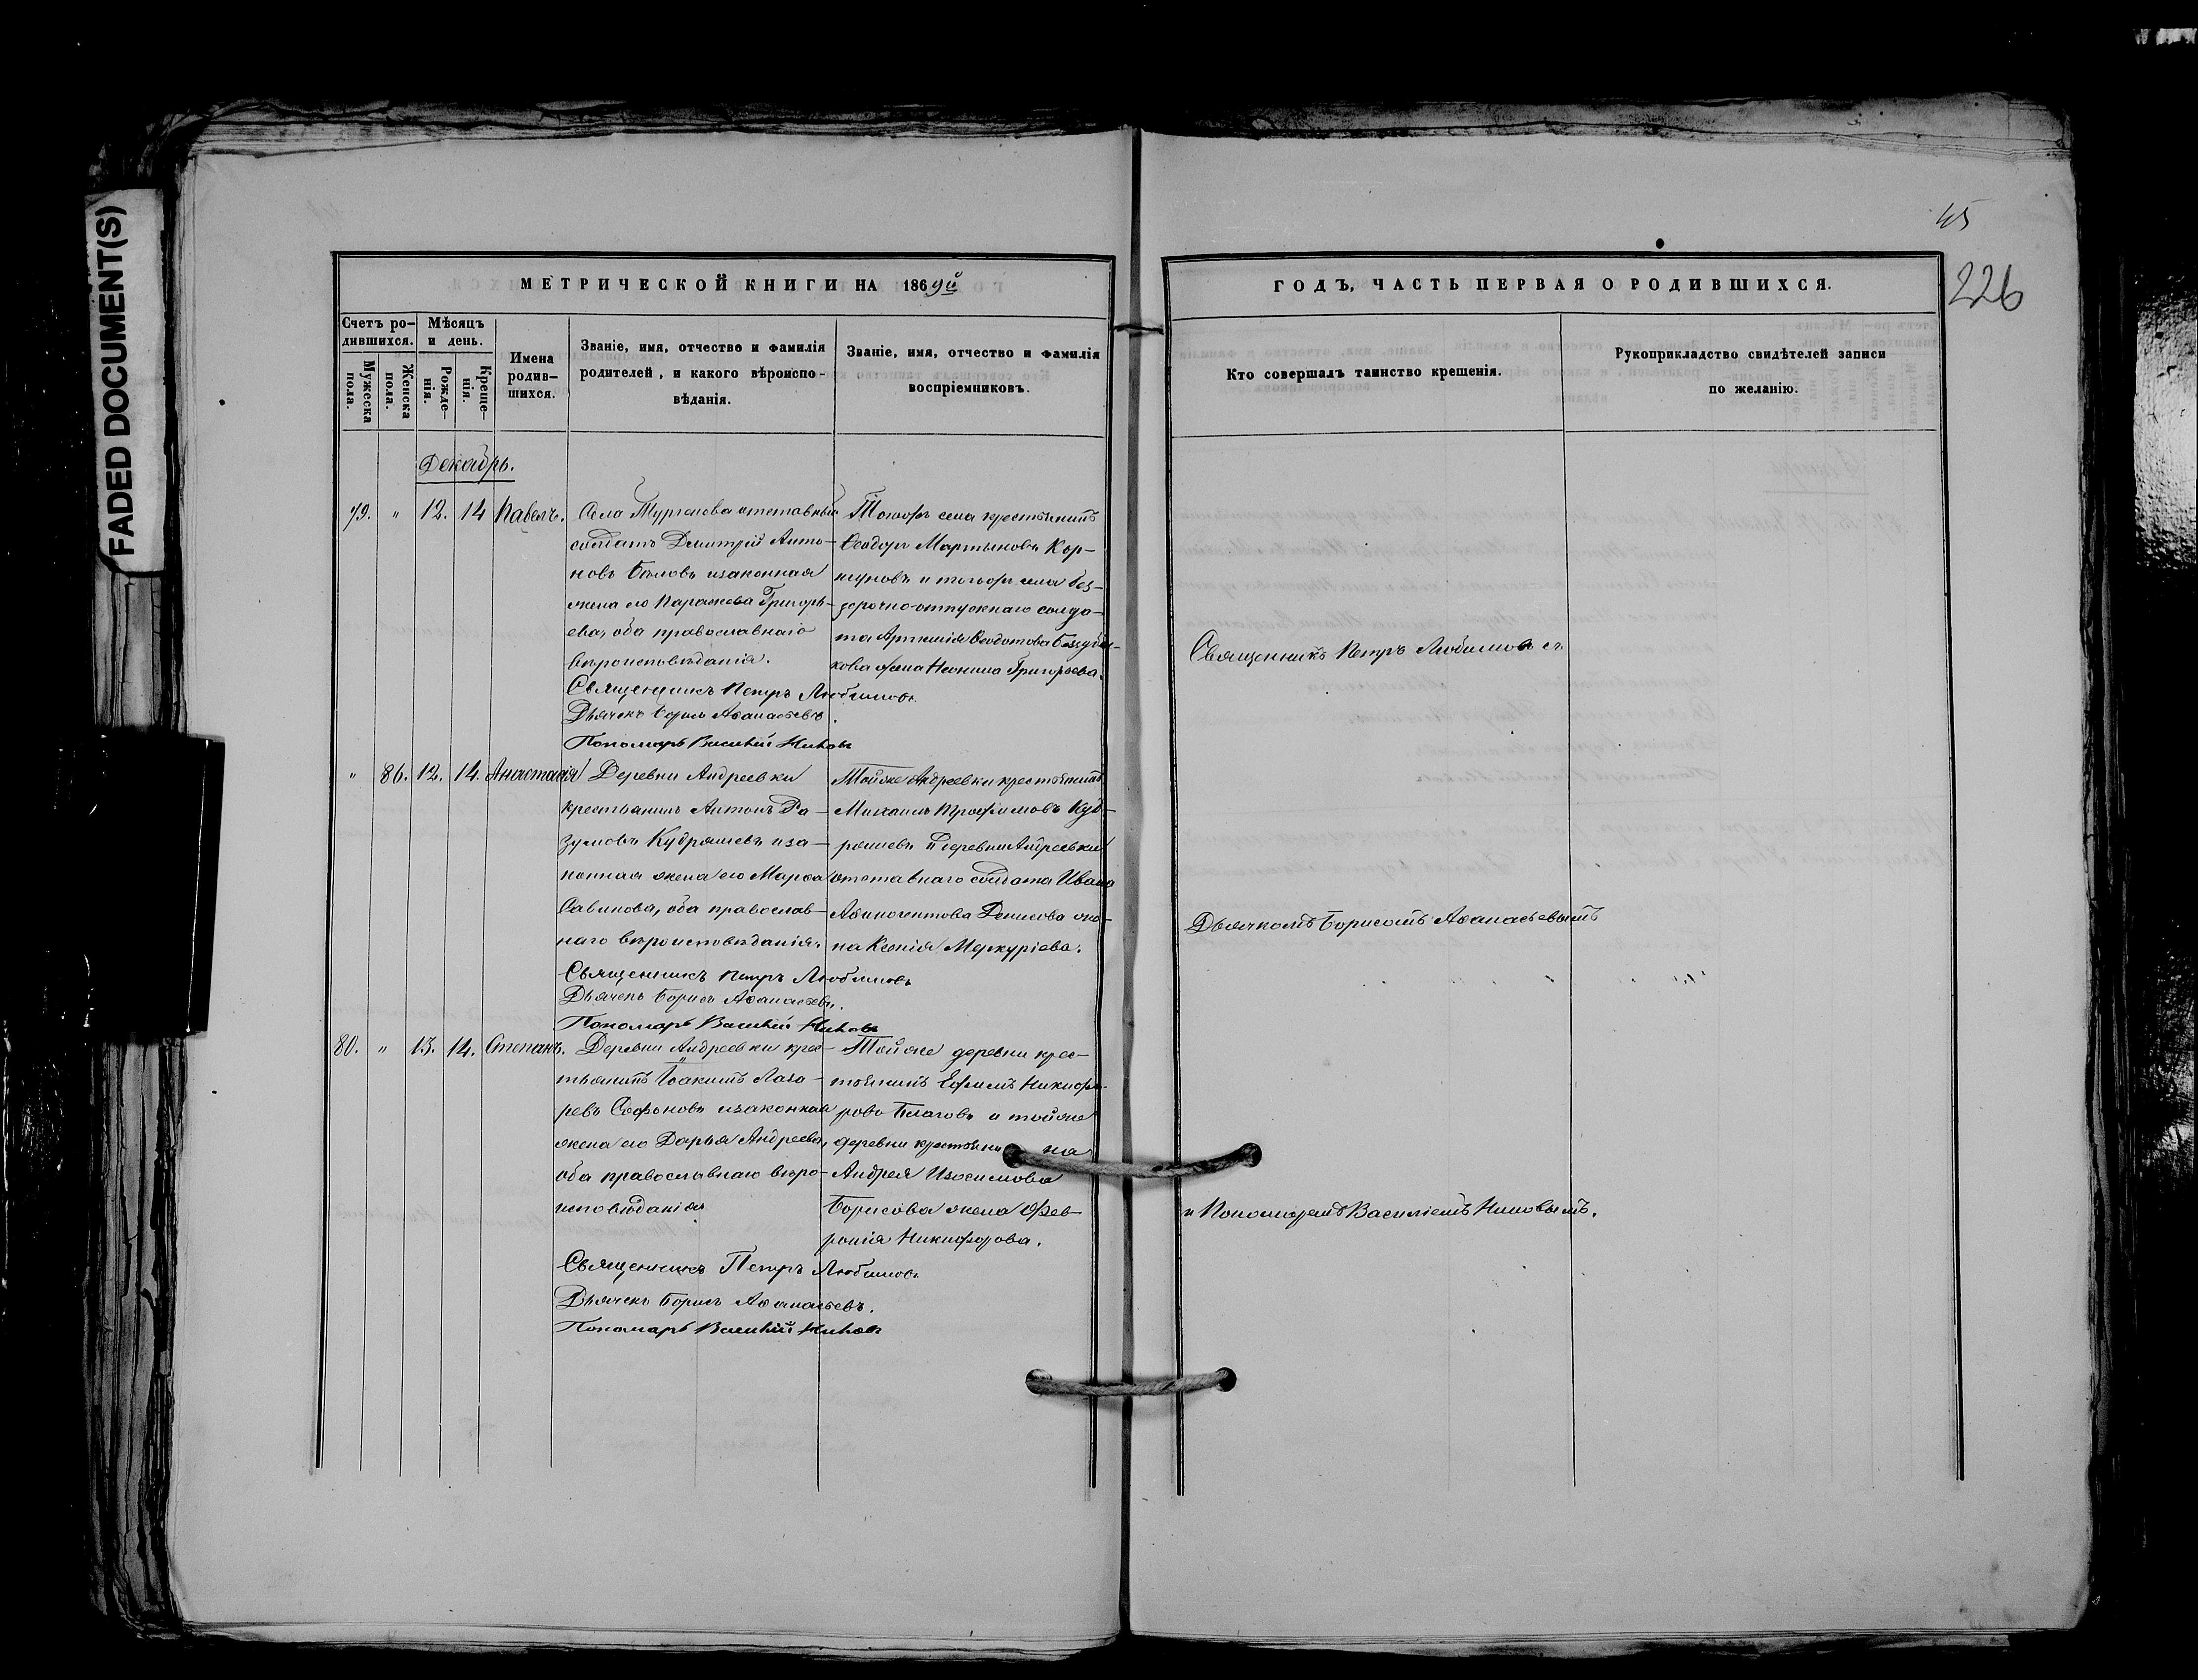 FADED DOCUMENT(S)
45
226
МЕТРИЧЕСКОЙ КНИГИ НА 1869й
ГОДЪ, ЧАСТЬ ПЕРВАЯ О РОДИВШИХСЯ.
Счетъ ро-
дившихся.
Мужеска пола.
Женска пола.
Мѣсяцъ
и день.
Рожде-
нія.
Креще-
нія.
Имена
родив-
шихся.
Званіе, имя, отчество и фамилія
родителей, и какого вѣроиспо-
вѣданія.
Званіе, имя, отчество и фамилія
воспріемниковъ.
Кто совершалъ таинство крещенія.
Рукоприкладство свидѣтелей записи
по желанію.
Декабрь.
79. " 12. 14 Павелъ.
Села отставный
солдатъ Дмитрій Анто-
новъ Бѣловъ и законная
жена его Параскева Григорь-
ева, оба православнаго
вѣроисповѣданія.
Священникъ Петръ Любимовъ
Дьячекъ Борисъ Аѳанасьевъ.
Пономарь Василій
Тогожъ села крестьянинъ
Ѳеодоръ Мартыновъ Кор-
шуновъ и тогожъ села без-
срочно-отпускнаго солда-
та Артемія Ѳеодотова
жена Григорьева.
Священникъ Петръ Любимовъ съ
" 86. 12. 14. Анастасія
Деревни Андреевки
крестьянинъ Антонъ Ра-
зумовъ Кудряшевъ и за-
конная жена его Марѳа
Савинова, оба православ-
наго вѣроисповѣданія.
Священникъ Петръ Любимовъ
Дьячекъ Борисъ Аѳанасьевъ.
Пономарь Василій
Тойже Андреевки крестьянинъ
Михаилъ Трофимовъ Куд-
ряшевъ и деревни Андреевки
отставнаго солдата Ивана
Денисова же-
на Ксенія Меркуріева.
Дьячкомъ Борисомъ Аѳанасьевымъ
80. " 13. 14. Степанъ.
Деревни Андреевки крес-
тьянинъ Іоакимъ Лаза-
ревъ Софоновъ и законная
жена его Дарья Андреева,
оба православнаго вѣро-
исповѣданія
Священникъ Петръ Любимовъ
Дьячекъ Борисъ Аѳанасьевъ.
Пономарь Василій
Тойже деревни крес-
тьянинъ Ефимъ Никифо-
ровъ и тойже
деревни крестьянина
Андрея Изосимова
Борисова жена Фев-
ронія Никифорова.
и Пономаремъ Василіемъ